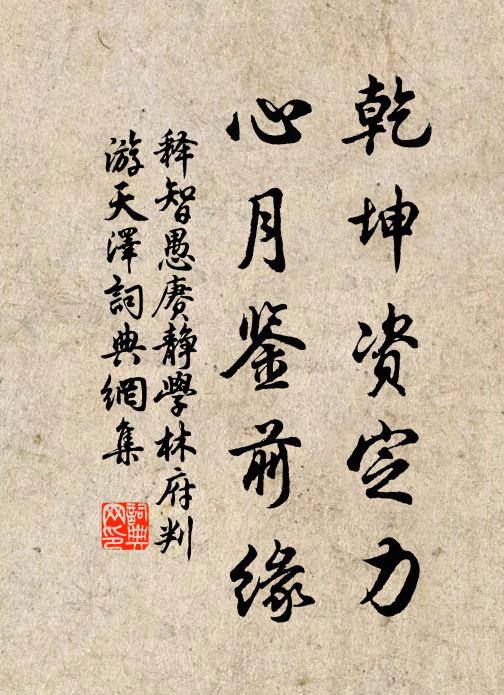 乾坤资定力
心月鉴前缘
释智愚赓静学林府判
游天泽詞典網集
詞典
网印